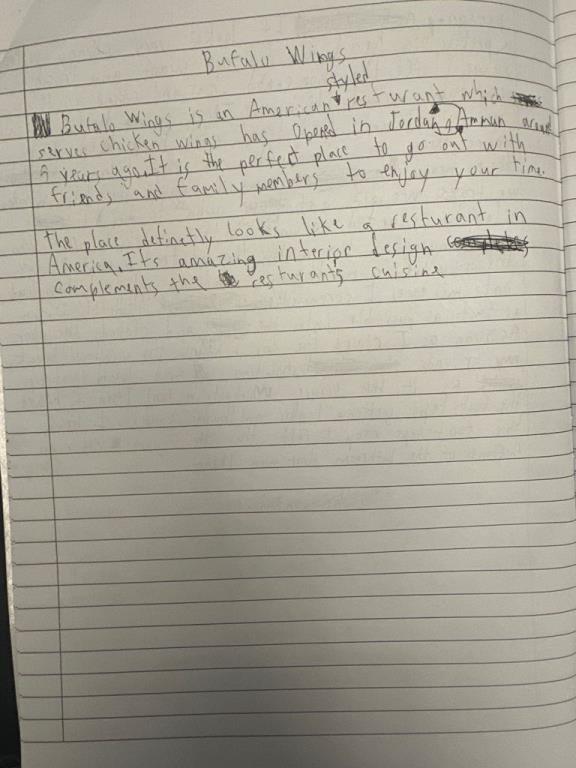 Bufalo Wings
styled
Bufalo Wings is an American resturant which
serves chicken wings has opened in Jordan, Amman
years ago. It is the perfect place to go out with
friends and family members to enjoy your time.
the place definetly looks like a resturant in
America. Its amazing interior design
complements the resturants cuisine